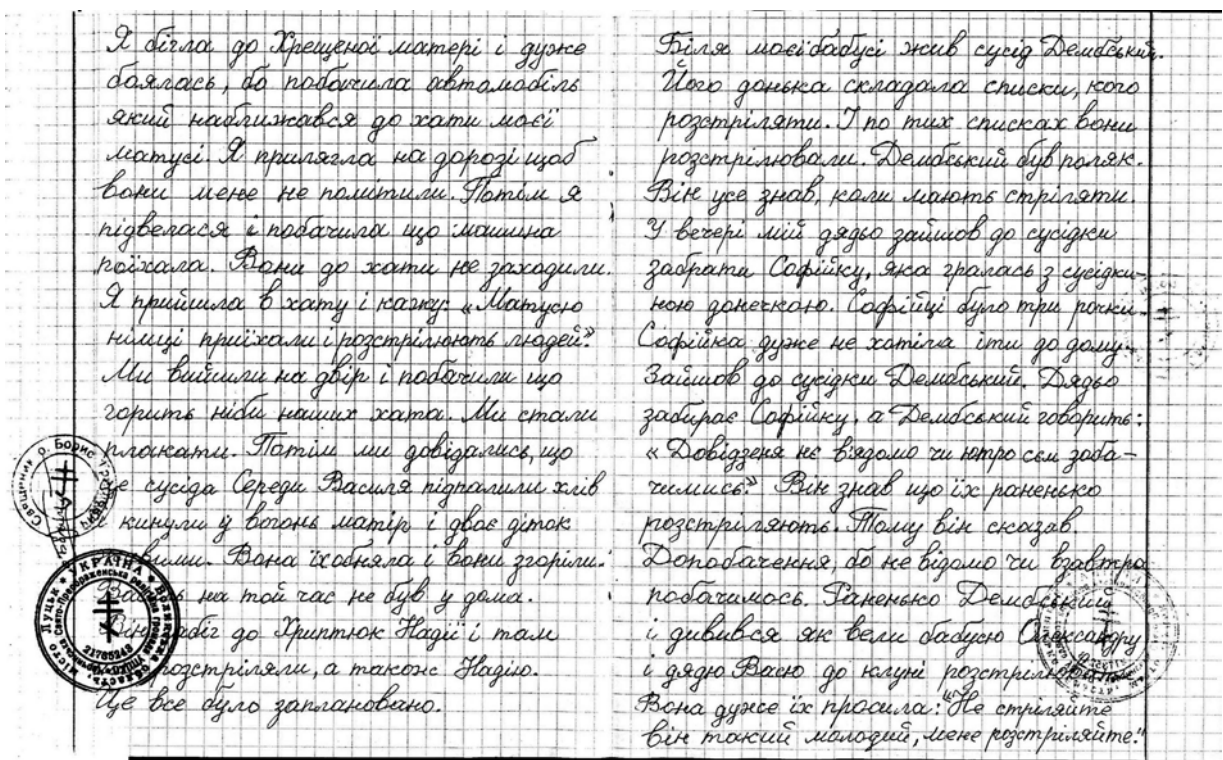 Я бігла до Хрещеної матері і дуже
боялась, бо побачила автомобіль
який наближався до хати моєї
матусі. Я прилягла на дорозі щоб
вони мене не помітили. Потім я
підвелася і побачила що машина
поїхала. Вони до хати не заходили.
Я прийшла в хату і кажу: «Матусю
німці приїхали і розстрілюють людей?»
Ми вийшли на двір і побачили що
горить ніби наших хата. Ми стали
плакати. Потім ми довідались, що
це сусіда Середи Василя підпалили хлів
і кинули у вогонь матір і двоє діток
живими. Вона їх обняла і вони згоріли.
Василь на той час не був у дома.
Він забіг до Хриптюк Надії і там
розстріляли, а також Надію.
Це все було заплановано.
Біля моєї бабусі жив сусід Дембський.
Його донька складала списки, кого
розстріляти. І по тих списках вони
розстрілювали. Дембський був поляк.
Він усе знав, коли мають стріляти.
У вечері мій дядьо зайшов до сусідки
забрати Софійку, яка гралась з сусідки-
ною донечкою. Софійці було три рочки.
Софійка дуже не хотіла іти до дому.
Зайшов до сусідки Дембський. Дядьо
забирає Софійку, а Дембський говорить:
« Довідзеня нє в'ядомо чи ютро сєм заба-
чимись.» Він знав що їх раненько
розстріляють. Тому він сказав
Допобачення, бо не відомо чи взавтра
побачимось. Раненько Дембський
і дивився як вели бабусю Олександру
і дядю Васю до клуні розстрілювати.
Вона дуже їх просила: "Не стріляйте
він такий молодий, мене розстріляйте."
Священник о. Борис
УКРАЇНА * Волинська область, місто Луцьк *
21765243